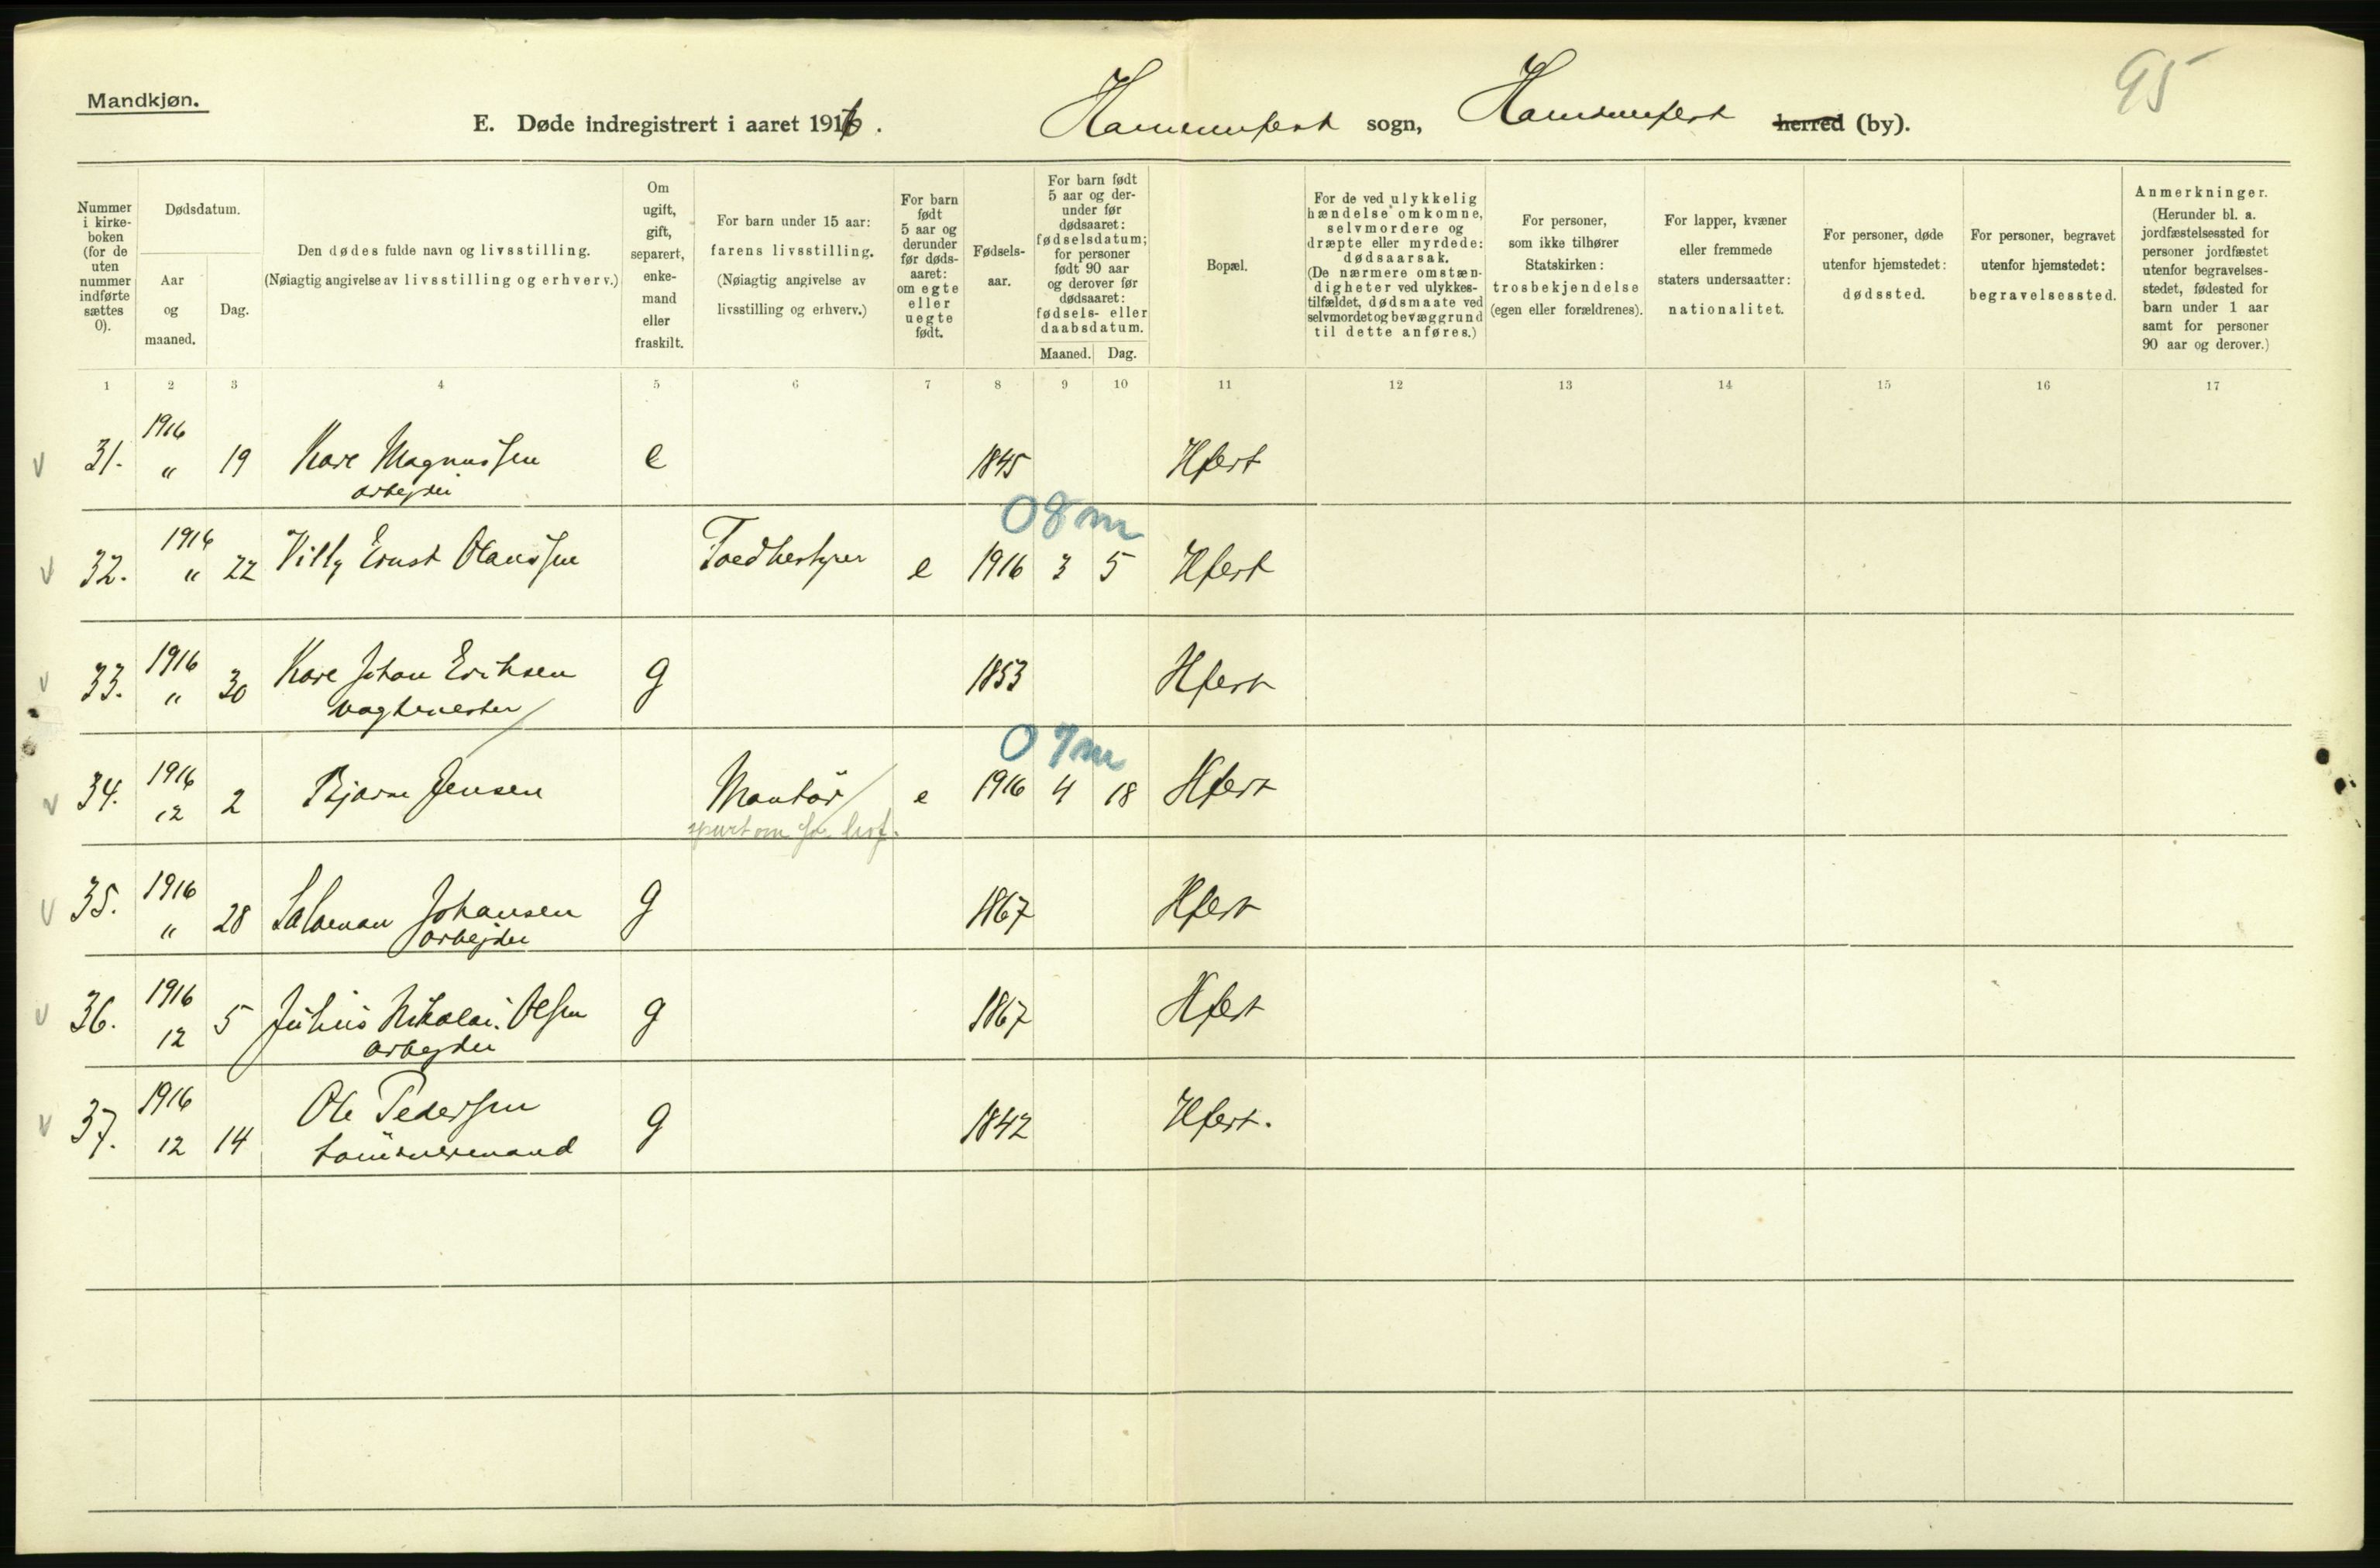 Mandkjøn.
95
E. Døde indregistrert i aaret 1916.
Hammerfest sogn, Hammerfest herred (by).
Nummer
i kirke-
boken
(for de
uten
nummer
indførte
sættes
0).
Dødsdatum.
Aar
og
maaned.
Dag.
Den dødes fulde navn og livsstilling.
(Nøiagtig angivelse av livsstilling og erhverv.)
Om
ugift,
gift,
separert,
enke-
mand
eller
fraskilt.
For barn under 15 aar:
farens livsstilling.
(Nøiagtig angivelse av
livsstilling og erhverv.)
For barn
født
5 aar og
derunder
før døds-
aaret:
om egte
eller
uegte
født.
Fødsels-
aar.
For barn født
5 aar og der-
under før
dødsaaret:
fødselsdatum;
for personer
født 90 aar
og derover før
dødsaaret:
fødsels- eller
daabsdatum.
Maaned.
Dag.
Bopæl.
For de ved ulykkelig
hændelse omkomne,
selvmordere og
dræpte eller myrdede:
dødsaarsak.
(De nærmere omstæn-
digheter ved ulykkes-
tilfældet, dødsmaate ved
selvmordet og bevæggrund
til dette anføres.)
For personer,
som ikke tilhører
Statskirken:
trosbekjendelse
(egen eller forældrenes).
For lapper, kvæner
eller fremmede
staters undersaatter:
nationalitet.
For personer, døde
utenfor hjemstedet:
dødssted.
For personer, begravet
utenfor hjemstedet:
begravelsessted.
Anmerkninger.
(Herunder bl. a.
jordfæstelsessted for
personer jordfæstet
utenfor begravelses-
stedet, fødested for
barn under 1 aar
samt for personer
90 aar og derover.)
1 2 3 4 5 6 7 8 9 10 11 12 13 14 15 16 17
1916
31. " 19 Kare Magnussen e 1845 Hfest
arbejder
0 8 m
1916
32. " 22 Villy Ernst Olaussen e 1916 3 5 Hfest
1916
33. " 30 Kare Johan Eriksen g 1853 Hfest
vagtmester
0 7 m
1916
34. 12 2 Bjarne Jensen Montör e 1916 4 18 Hfest
spurt om
1916
35. " 28 Salomon Johansen g 1867 Hfest
arbejder
1916
36. 12 5 Julius Nikolai Olsen g 1867 Hfest
arbejder
1916
37. 12 14 Ole Pedersen g 1842 Hfest.
tömmermand